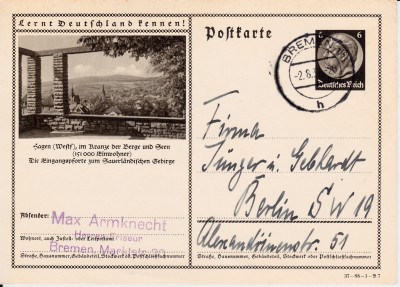 Lernt Deutschland kennen!
Postkarte
BREMEN
-2.6.
h
6 6
Deutsches Reich
Hagen (Westf.), im Kranze der Berge und Seen
(151 000 Einwohner)
Die Eingangspforte zum Sauerländischen Gebirge
Firma
Jünger u. Gebhardt
Berlin SW 19
Alexandrinenstr. 51
Absender: Max Armknecht
Herren-Friseur
Wohnort, auch Zustell- oder Leitpostamt
Bremen, Marktstr.
Straße, Hausnummer, Gebäudeteil, Stockwerk od. Postschließfachnummer
Straße, Hausnummer, Gebäudeteil, Stockwerk oder Postschließfachnummer